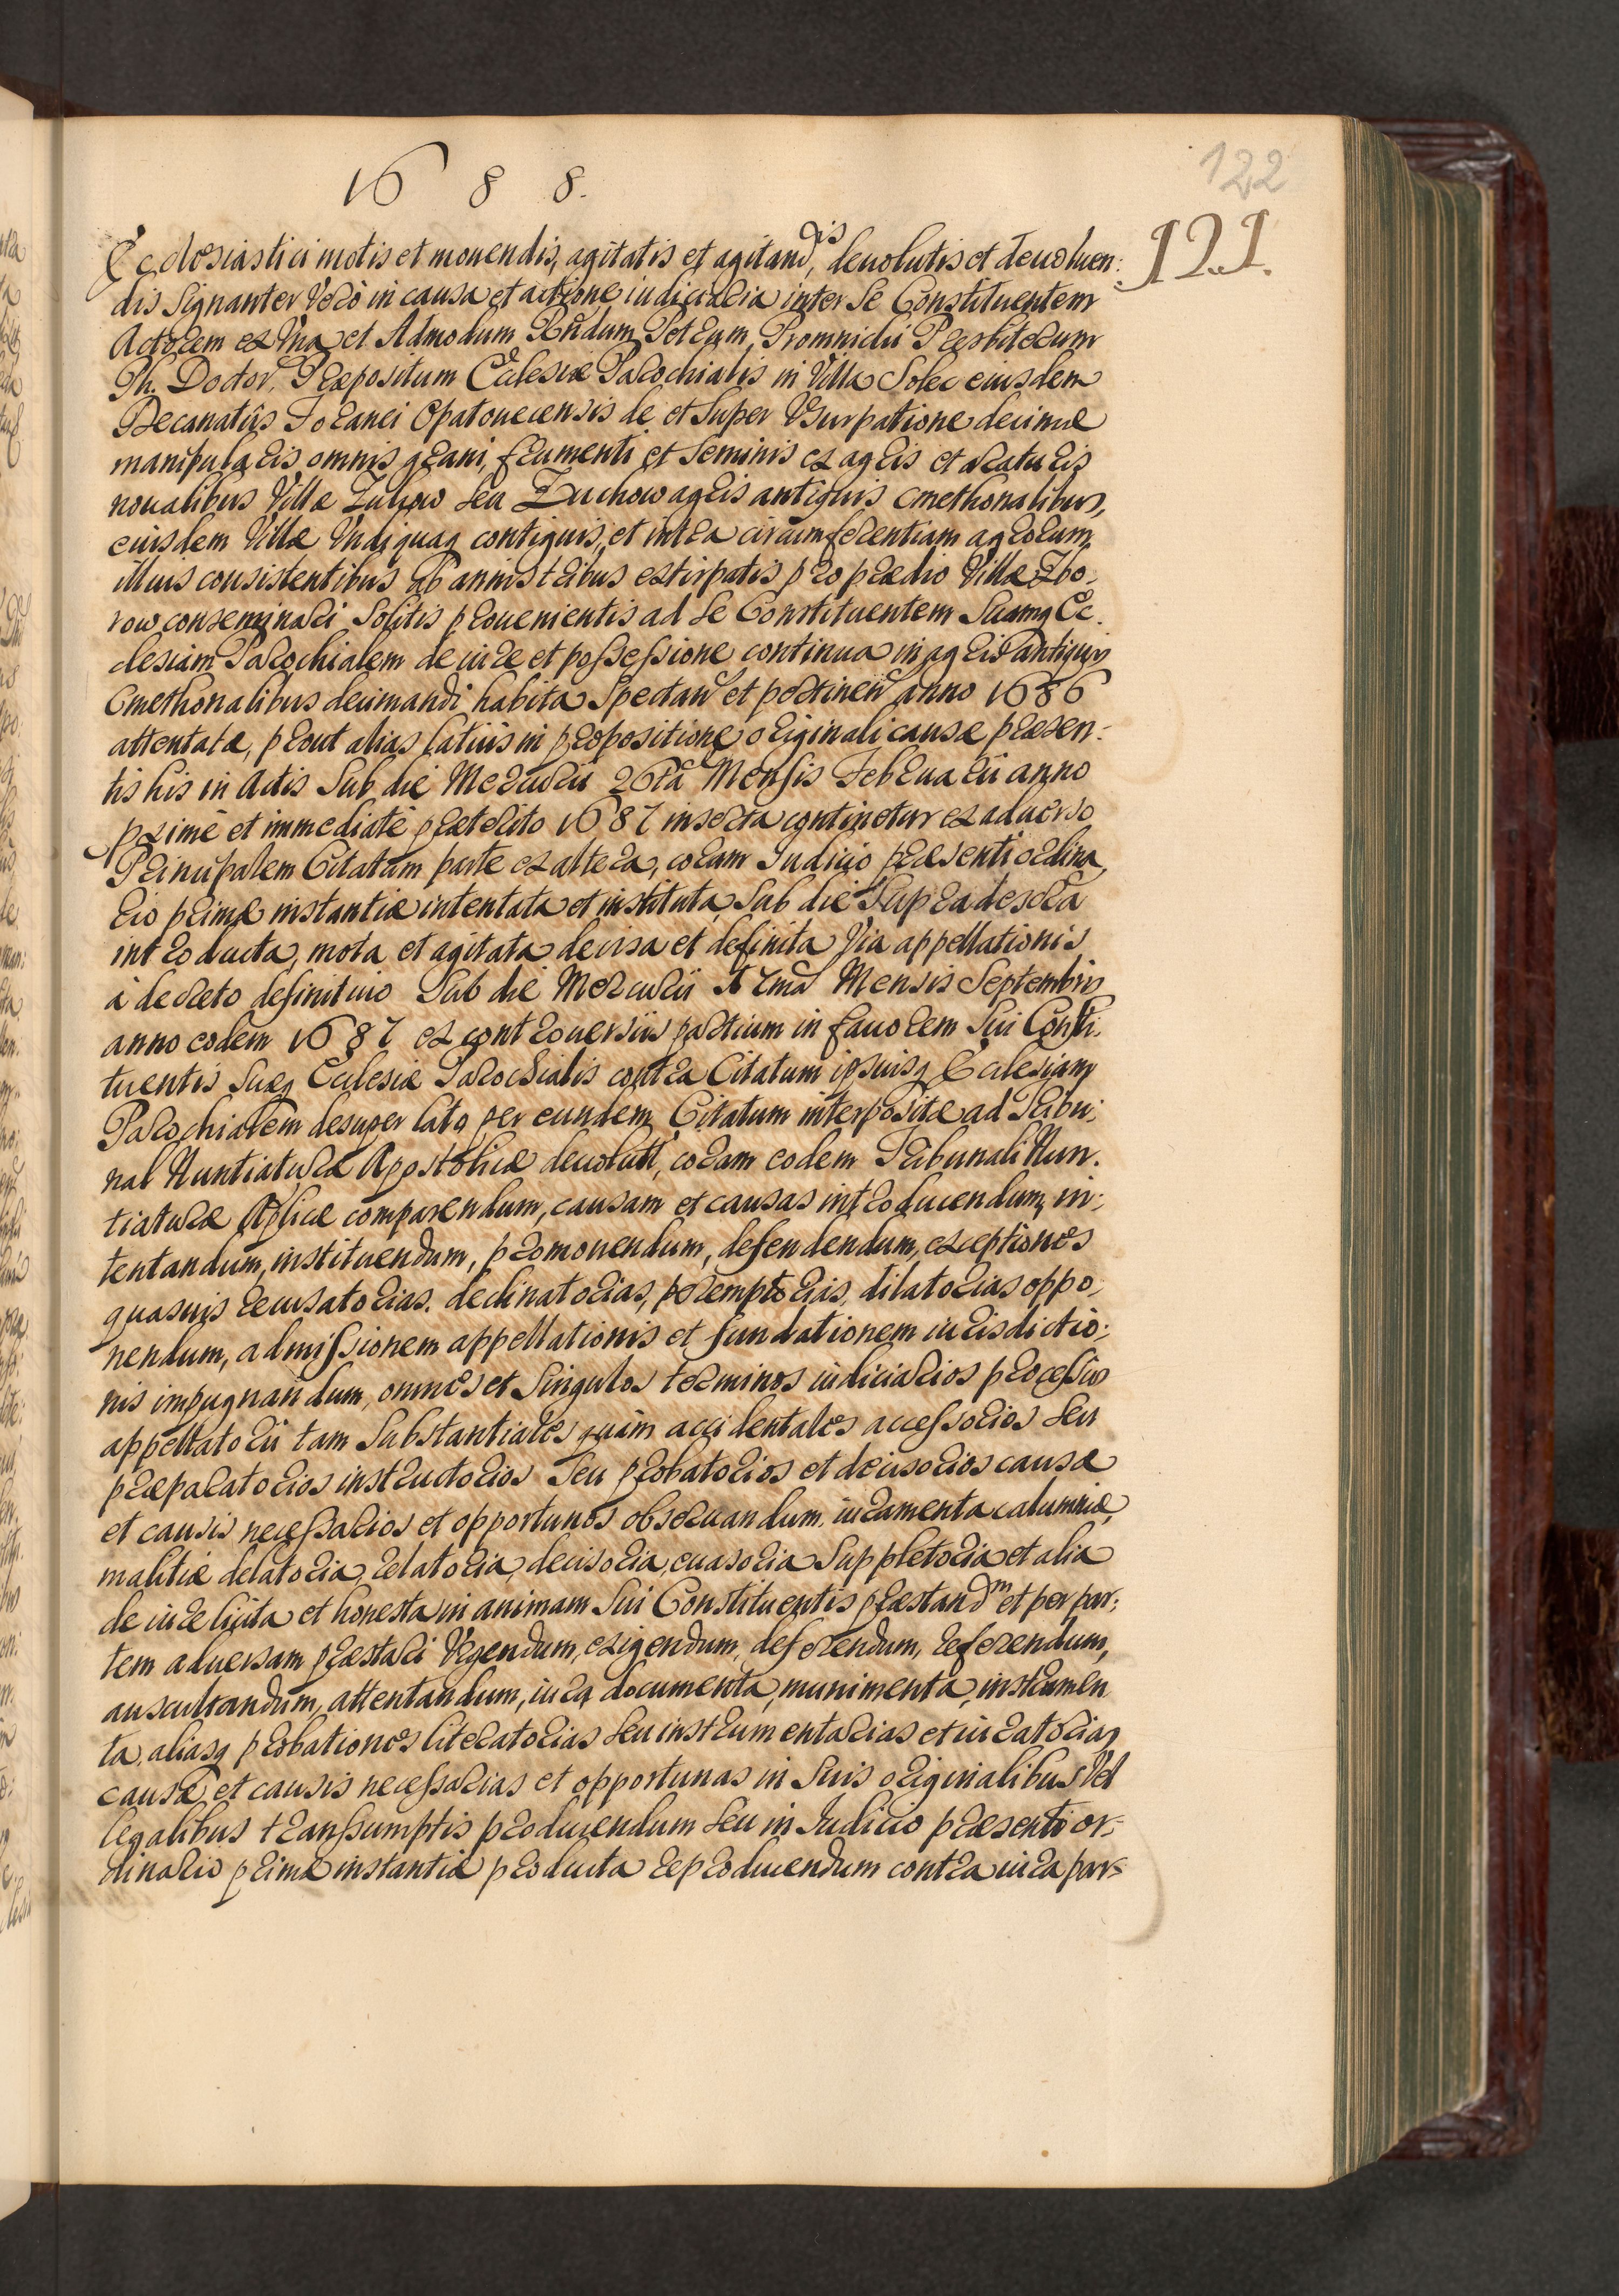 1688.
122
121.
Ecclesiastici motis et mouendis, agitatis et agitand^dis, deuolutis et deuoluen:
dis signanter verò in causa et actione iudiciaria inter se Constituentem
Actorem ex vna et Admodum Rndum Petrum Promnicki Presbiterum
Ph. Doctor. Præpositum Ecclesiæ Parochialis in Villa Solec eiusdem
Decanatûs Foranei Opatouecensis de et super Vsurpatione decimæ
manipularis omnis grani, frumenti et seminis ex agris et araturis
noualibus Villæ Zuhow seu Zuchow agris antiquis cmethonalibus,
eiusdem Villæ Vndiquaq contiguis, et intra circumferentiam agrorum
illius consistentibus ab annis tribus extirpatis pro prædio Villæ Zbo-
row conseminari solitis prouenientis ad se Constituentem suamq Ec.
clesiam Parochialem de iure et possessione continua in agris antiquis
Cmethonalibus decimandi habita spectan et pertinen anno 1686
attentatæ, prout alias latius in propositione originali causæ præsen:
tis his in Actis sub die Mercurij 26ta Mensis Februarij anno
pximè et immediatè præterito 1687 inserta continetur ex aduerso
Principalem Citatum parte ex altera, coram Iudicio præsenti ordina,
rio primæ instantiæ intentata et instituta, sub die supradescta
introducta, mota et agitata decisa et definita via appellationis
à decreto definitiuo sub die Mercurij Mensis Septembris
anno eodem 1687 ex controuersiis partium in fauorem sui Consti.
tuentis suæq Ecclesiæ Parochialis contra Citatum ipsiusq Ecclesiam
Parochialem desuper lato per eundem Citatum interpositæ ad Tribu:
nal Nuntiaturæ Apostolicæ deuoluti, coram eodem Tribunali Nun.
tiaturæ Aplicæ comparendum, causam et causas introducendum, in:
tentandum, instituendum, promouendum, defendendum, exceptiones
quasuis recusatorias. declinatorias, peremptorias, dilatorias oppo,
nendum, admissionem appellationis et fundationem iurisdictio:
nis impugnandum, omnes et singulos terminos iudiciarios processus
appellatorij tam substantiales quàm accidentales accessorios seu
præparatorios instructorios seu probatorios et decisorios causæ
et causis necessarios et opportunos obseruandum, iuramenta calumniæ,
malitiæ delatoria, relatoria, decisoria, euasoria suppletoria et alia
de iure licita et honesta in animam sui Constituentis præstand^m et per par:
tem aduersam præstari Vrgendum, exigendum, deferendum, referendum,
auscultandum, attentandum, iura documenta, munimenta, instrumen
ta, aliasq probationes literatorias seu instrumentarias et iuratorias
causæ et causis necessarias et opportunas in suis originalibus vel
legalibus transsumptis producendum seu in Iudicio præsenti or:
dinario primæ instantiæ producta reproducendum contra iura par: